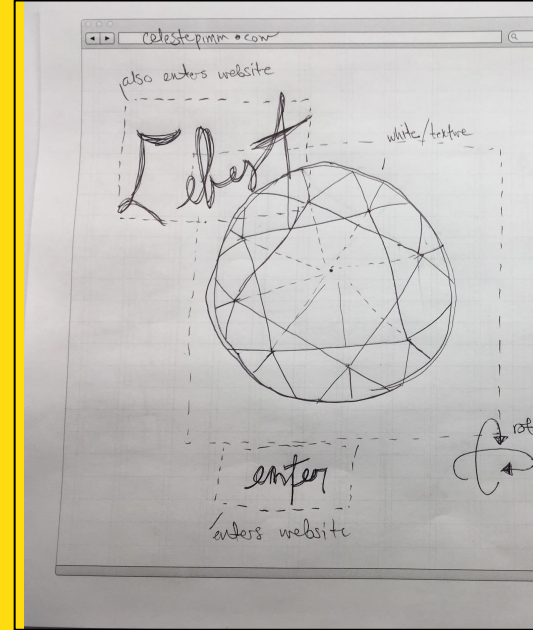 celestepimm.com
also enters website
Celest
white/texture
enter
enters website